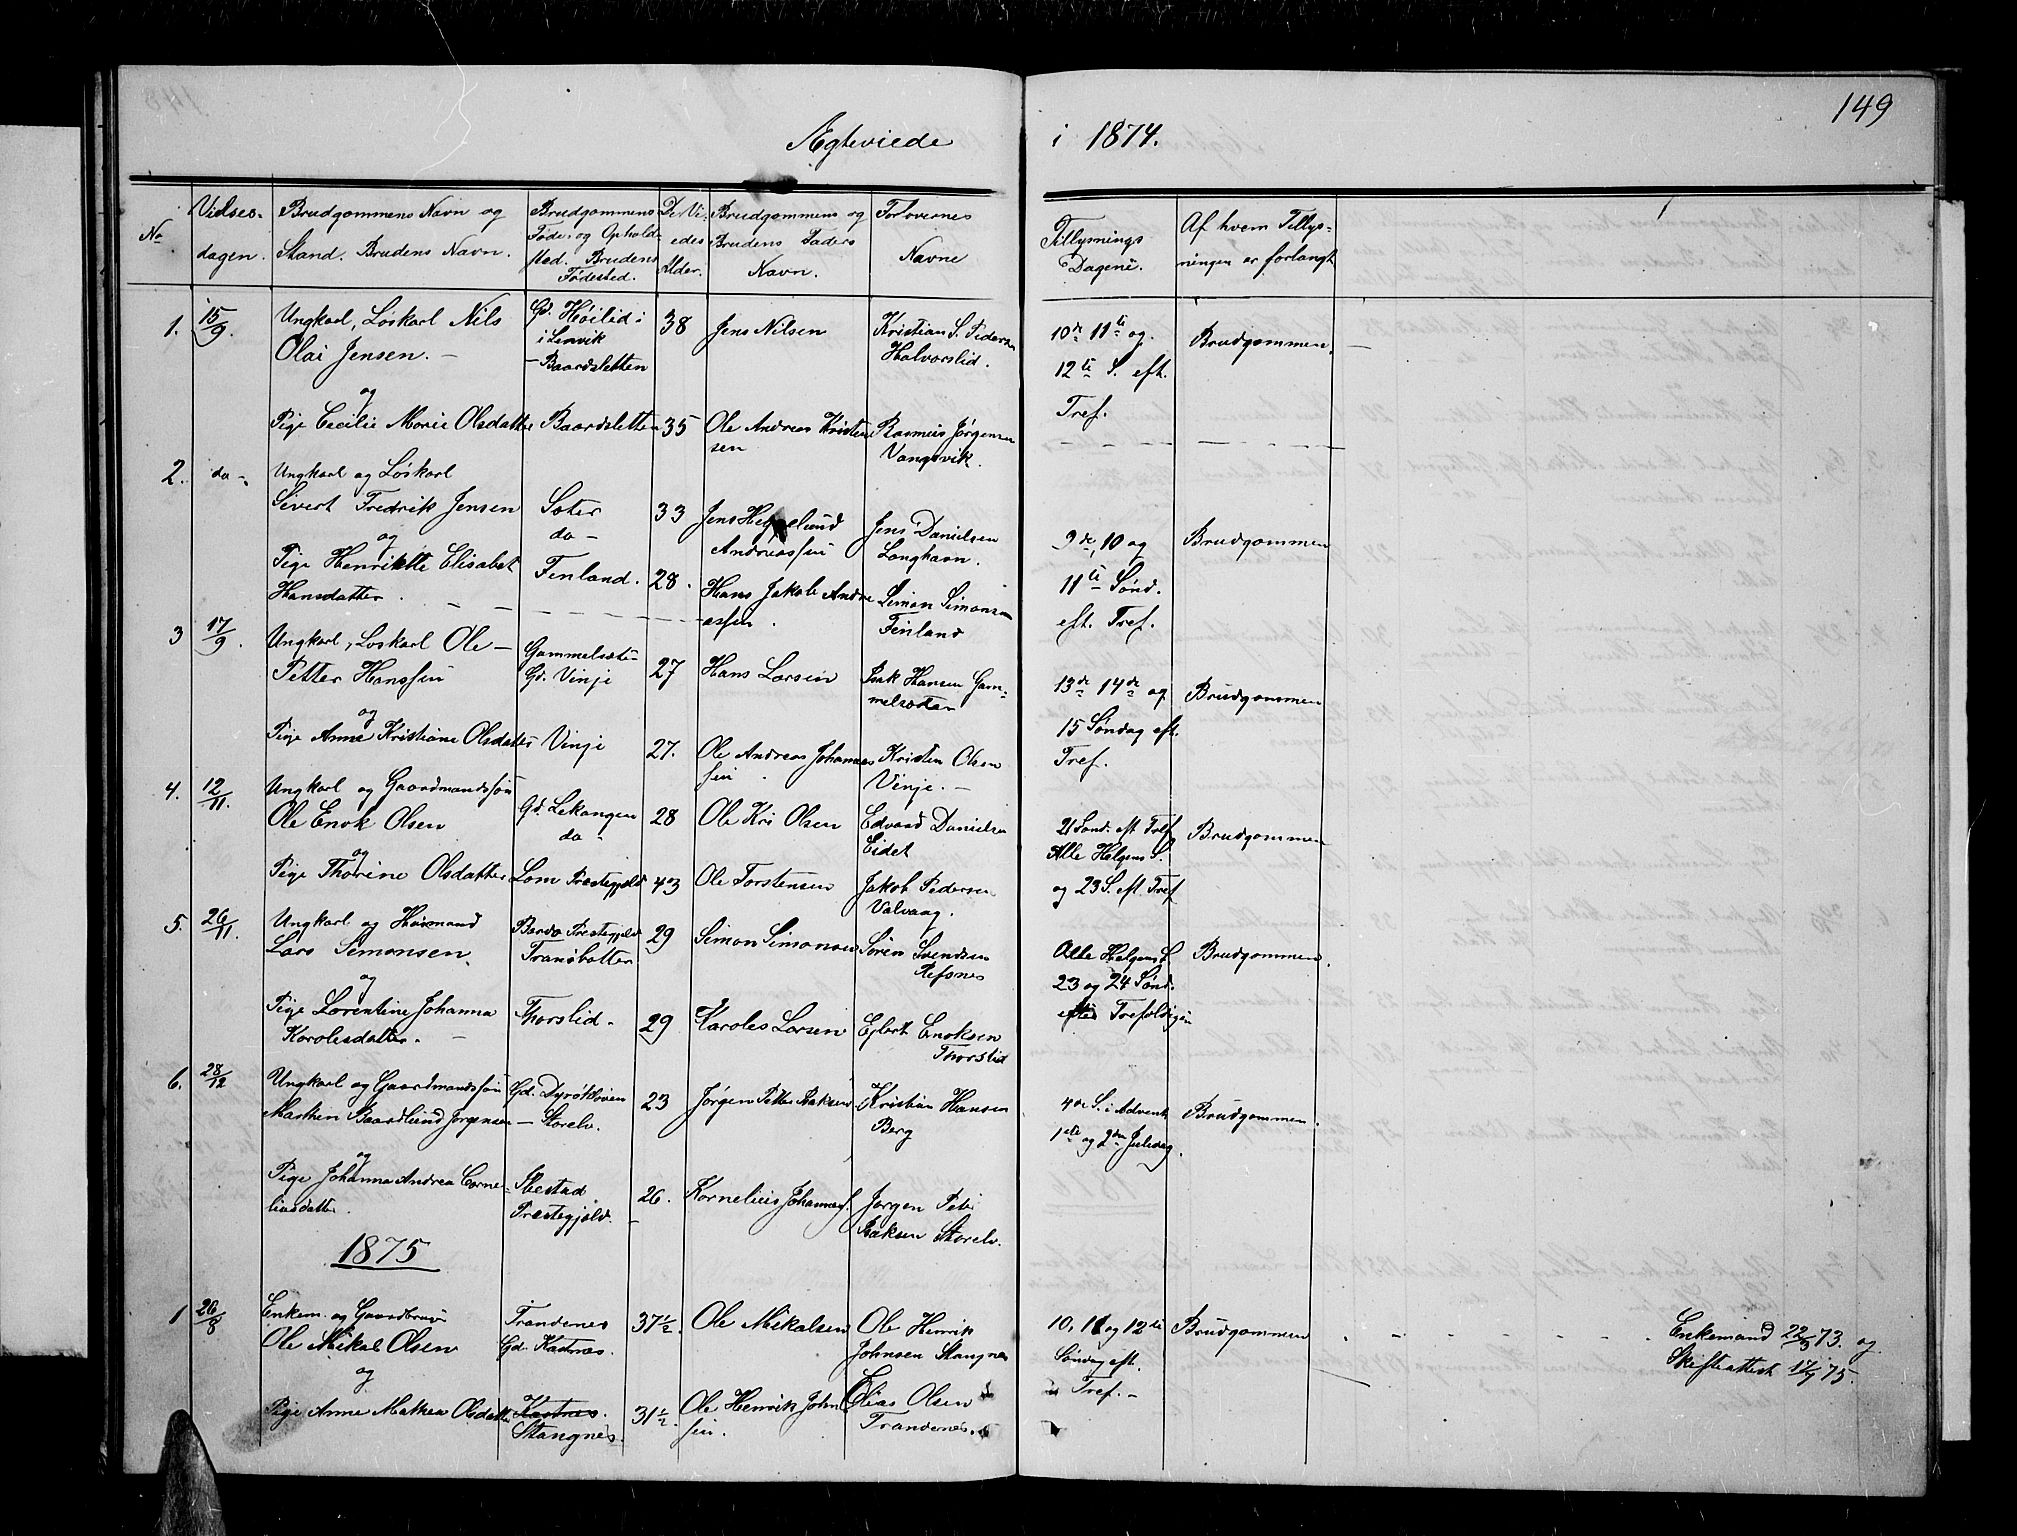 149
Ægteviede i 1874.
No
Vielses-
dagen.
Brudgommens Navn og
Stand. Brudens Navn.
Brudgommens
Føde- og Opholds
sted. Brudens
Fødested.
De Vi-
edes
Alder.
Brudgommens og
Brudens Faders
Navn.
Forlovernes
Navne
Tillysnings
Dagene.
Af hvem Tillys-
ningen er forlangt
1.
15/9.
Ungkarl, Løskarl Nils
Olai Jensen. -
og
Pige Cecilie Marie Olsdatter
Gd. Høilid i
i Lenvik
- Baardsletten
Baardsletten
38
35
Jens Nilsen
Ole Andreas Kristen
sen
Kristian S. Pedersen
Halvorslid.
Rasmus Jørgensen
Vangsvik.
10de 11te og
12te S. eft.
Tref.
Brudgommen.
2.
do -
Ungkarl og Løskarl
Sivert Fredrik Jensen
og
Pige Henrikke Elisabet
Hansdatter.
Sæter
do -
Finland.
33
28.
Jens Heggelund
Andreassen
Hans Jakob Andre
assen.
Jens Danielsen
Langhavn.
Simon Simonsen
Finland
9de, 10 og
11te Sønd.
eft. Tref.
Brudgommen
3
17/9.
Ungkarl, Løskarl Ole -
Petter Hanssen
og
Pige Anne Kristiane Olsdatter
Gammelsæter
Gd. Vinje
Vinje
27
27.
Hans Larsen
Ole Andreas Johannes
sen.
Isak Hansen Gam-
melsæter
Kristen Olsen
Vinje. -
13de 14de og
15 Søndag eft.
Tref.
Brudgommen
4.
12/11.
Ungkarl og Gaardmandssøn
Ole Enok Olsen
og
Pige Thorine Olsdatter
Gd. Lekangen
do -
Lom Prestegjeld
28
43
Ole Kri Olsen
Ole Torstensen
Edvard Danielsen
Eidet
Jakob Pedersen
Valvaag.
21 Sønd. eft Tref
Alle Helgens S.
og 23 S. eft Tref
Brudgommen
5.
26/11.
Ungkarl og Husmand
Lars Simonsen.
og
Pige Lorentine Johanna
Karolesdatter. -
Bardo Prestegjeld
Tranøbotten
Thorslid -
29
29
Simon Simonsen
Karoles Larsen
Søren Svendsen
Refsnes
Ejlert Enoksen
Thorslid
Alle Helgens S.
23 og 24 Sønd.
efter Trefoldigen
Brudgommen.
6.
28/12
Ungkarl og Gaardmandssøn
Marthen Baardlund Jørgensen
og
Pige Johanna Andrea Corne-
liusdatter.
Gd. Dyrøkloven
- Storelv.
Ibestad
Prestegjeld.
23
26.
Jørgen Petter Isaksen
Kornelius Johannes.
Kristian Hansen
Berg
Jørgen Peter
Isaksen Storelv.
4de S. i Advent
1ste og 2den Juledag.
Brudgommen.
1875
1
26/8
Enkem. og Gaardbruger
Ole Mikal Olsen
og
Pige Anne Mathea Olsdatter
Trandenes
Gd. Kastnes.
Kastnes.
Stangnes.
37 1/2.
31 1/2.
Ole Mikalsen
Ole Henrik John
sen.
Ole Henrik
Johnsen Stangnes
Elias Olsen
Trandenes.
10, 11 og 12te
Søndag eft.
Tref. -
Brudgommen
Enkemand 22/3 73. og
Skifteattest 17/7 75.